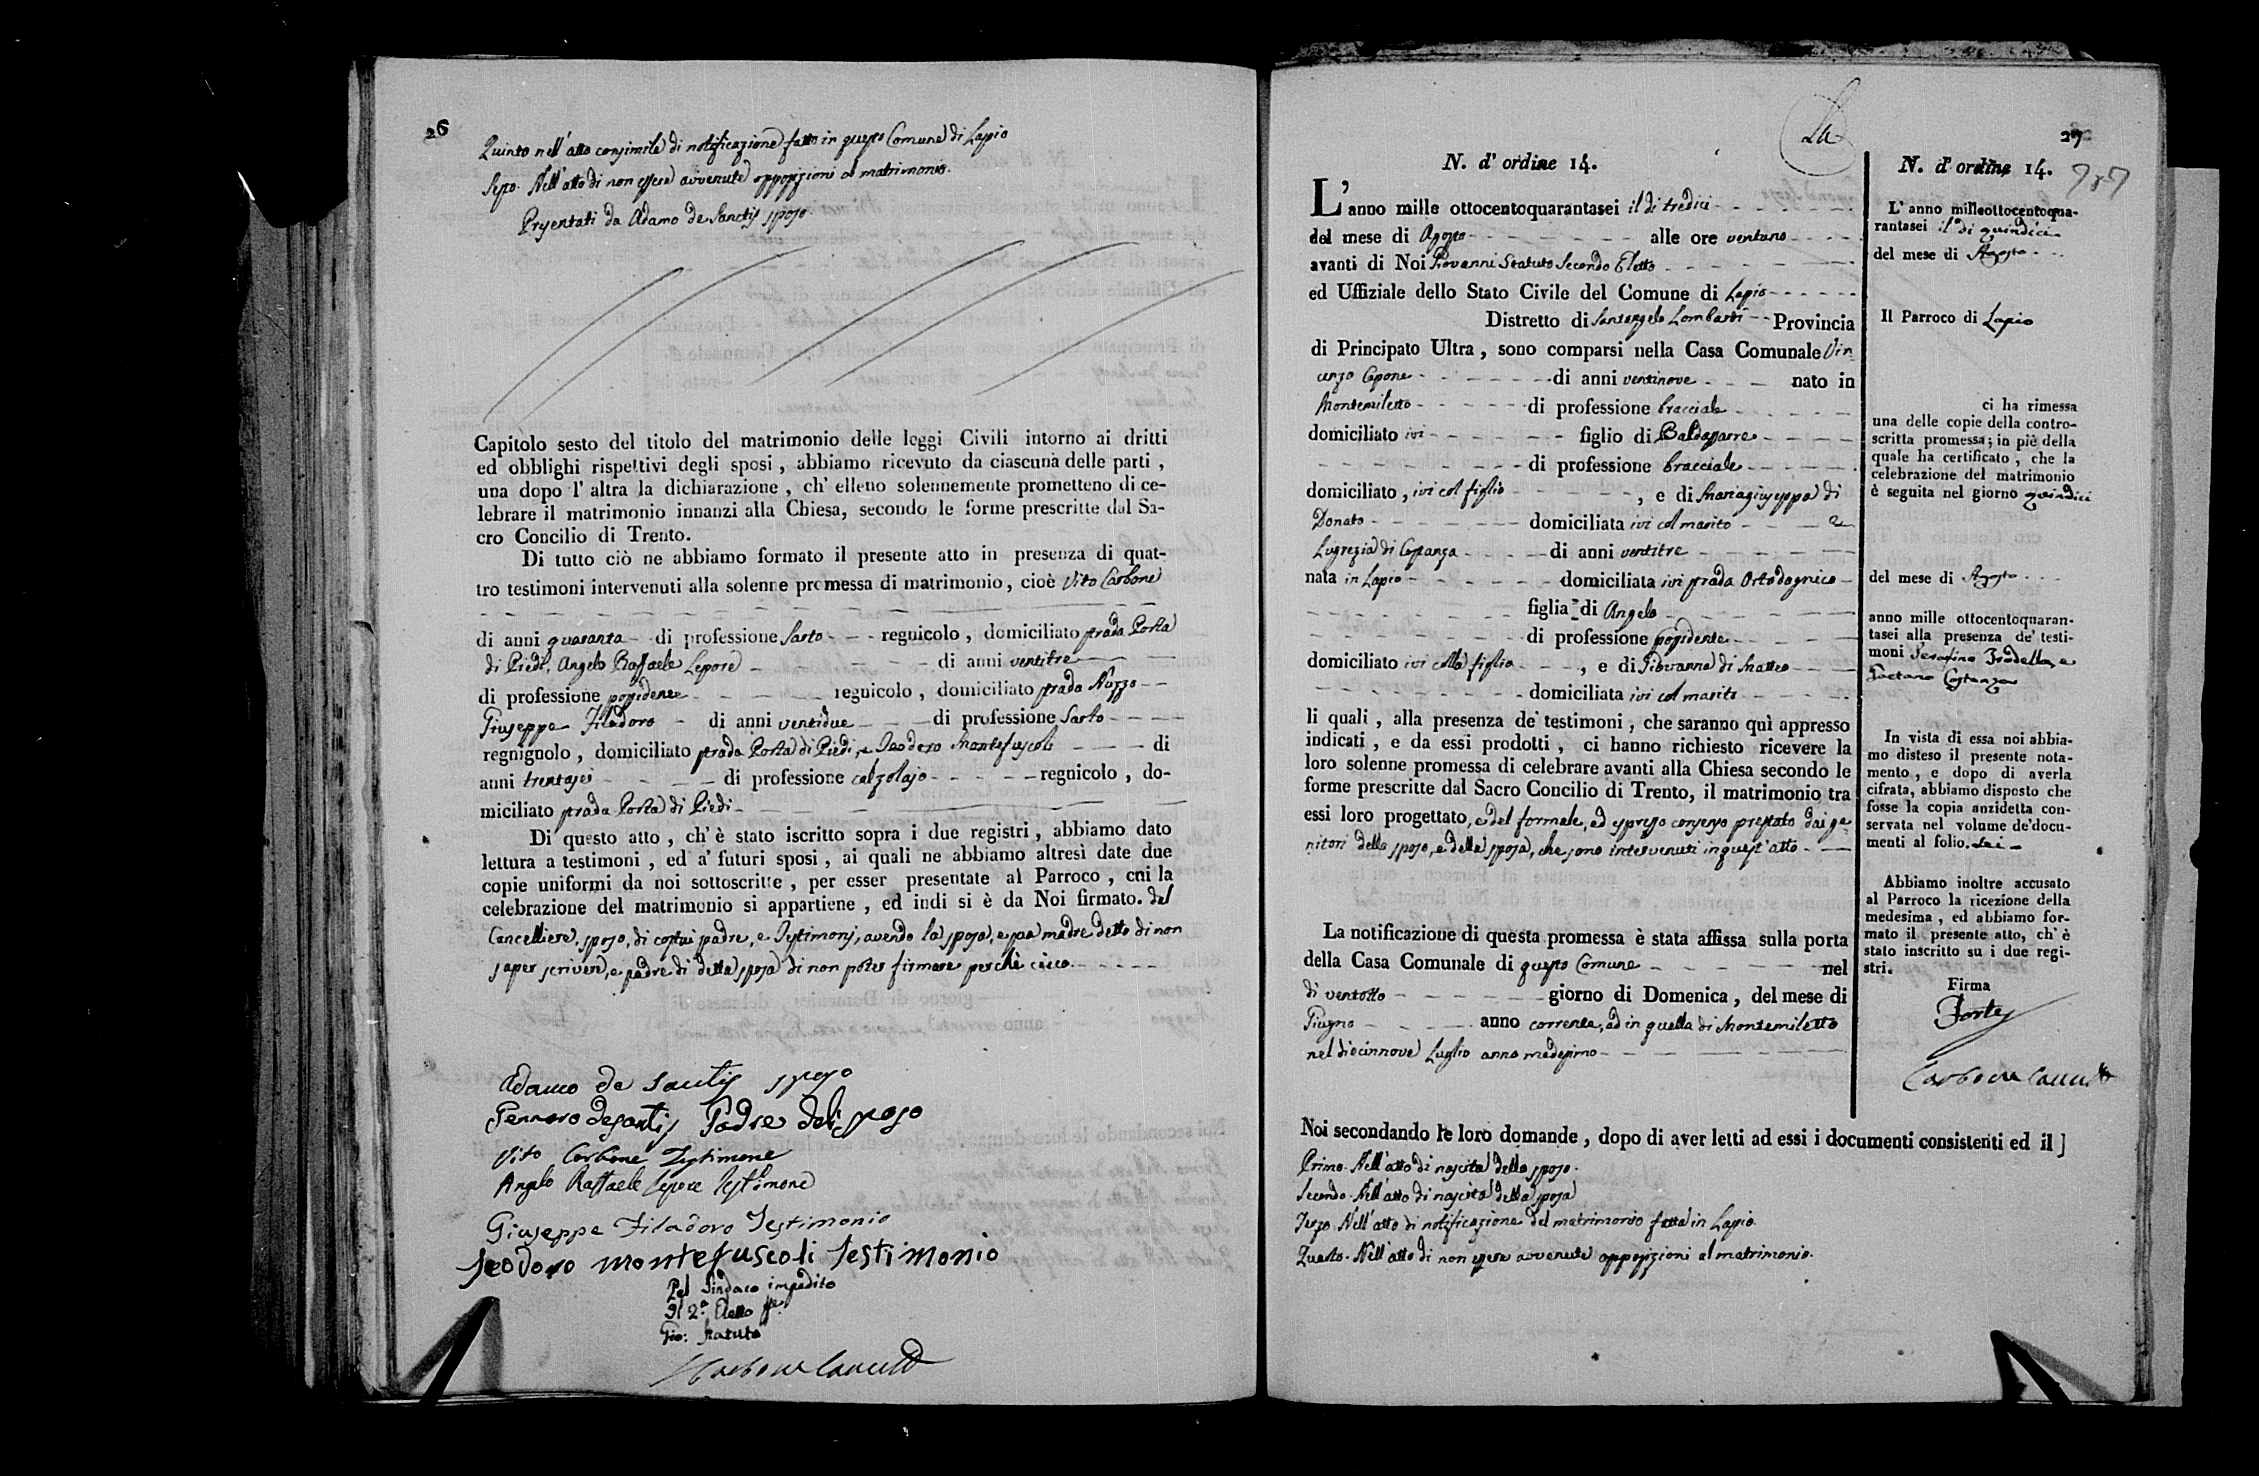 26
Quinto nell'atto consimile di notificazione fatto in questo Comune di Lapio
Sesto. Nell'atto di non essere avvenute opposizioni al matrimonio.
Presentati da Adamo de Sanctis sposo
Capitolo sesto del titolo del matrimonio delle leggi Civili intorno ai dritti
ed obblighi rispettivi degli sposi, abbiamo ricevuto da ciascuna delle parti,
una dopo l'altra la dichiarazione, ch'elleno solennemente promettono di ce-
lebrare il matrimonio innanzi alla Chiesa, secondo le forme prescritte dal Sa-
cro Concilio di Trento.
Di tutto ciò ne abbiamo formato il presente atto in presenza di quat-
tro testimoni intervenuti alla solenne promessa di matrimonio, cioè Vito Carbone
di anni quaranta di professione Sarto regnicolo, domiciliato strada Porta
di Piedi, Angelo Raffaele Lepore di anni ventitre
di professione possidente regnicolo, domiciliato strada Nuzzo
Giuseppe Filadoro di anni ventidue di professione Sarto
regnignolo, domiciliato strada Porta di Piedi, e Teodoro Montefuscoli di
anni trentasei di professione calzolajo regnicolo, do-
miciliato strada Porta di Piedi
Di questo atto, ch'è stato iscritto sopra i due registri, abbiamo dato
lettura a testimoni, ed a' futuri sposi, ai quali ne abbiamo altresì date due
copie uniformi da noi sottoscritte, per esser presentate al Parroco, cui la
celebrazione del matrimonio si appartiene, ed indi si è da Noi firmato. dal
Cancelliere, sposo, di costui padre, e Testimonj, avendo la sposa, e sua madre detto di non
saper scrivere, e padre di detta sposa di non poter firmare perchè cieco
Adamo de Santis sposo
Gennaro desantis Padre del sposo
Vito Carbone Testimone
Angelo Raffaele Lepore Testimone
Giuseppe Filadoro Testimonio
Teodoro montefuscoli Testimonio
Pel Sindaco impedito
Il 2.º Eletto
Gio: Statuto
Carbone
27
N. d'ordine 14.
L'anno mille ottocentoquarantasei il di tredici
del mese di Agosto alle ore ventuno
avanti di Noi Giovanni Statuto Secondo Eletto
ed Uffiziale dello Stato Civile del Comune di Lapio
Distretto di Santangelo Lombardi Provincia
di Principato Ultra, sono comparsi nella Casa Comunale Vin
cenzo Capone di anni ventinove nato in
Montemiletto di professione bracciale
domiciliato ivi figlio di Baldassarre
di professione bracciale
domiciliato, ivi col figlio, e di Mariagiuseppa di
Donato domiciliata ivi col marito e
Lugrezia di Costanza di anni ventitre
nata in Lapio domiciliata ivi strada Ortodognico
figlia di Angelo
di professione possidente
domiciliato ivi colla figlia, e di Giovanna di Matteo
domiciliata ivi col marito
li quali, alla presenza de' testimoni, che saranno quì appresso
indicati, e da essi prodotti, ci hanno richiesto ricevere la
loro solenne promessa di celebrare avanti alla Chiesa secondo le
forme prescritte dal Sacro Concilio di Trento, il matrimonio tra
essi loro progettato, e del formale, ed espresso consenso prestato dai ge
nitori dello sposo, e della sposa, che sono intervenuti in quest'atto
La notificazione di questa promessa è stata affissa sulla porta
della Casa Comunale di questo Comune nel
di ventotto giorno di Domenica, del mese di
Giugno anno corrente, ad in quella di Montemiletto
nel diecinnove Luglio anno medesimo
Noi secondando le loro domande, dopo di aver letti ad essi i documenti consistenti ed il]
Primo. Nell'atto di nascita dello sposo.
Secondo. Nell'atto di nascita della sposa
Terzo. Nell'atto di notificazione del matrimonio fatta in Lapio
Quarto. Nell'atto di non essere avvenute opposizioni al matrimonio.
N. d'ordine 14.
L'anno milleottocentoqua-
rantasei il di quindici
del mese di Agosto
Il Parroco di Lapio
ci ha rimessa
una delle copie della contro-
scritta promessa; in piè della
quale ha certificato, che la
celebrazione del matrimonio
è seguita nel giorno quindici
del mese di Agosto
anno mille ottocentoquaran-
tasei alla presenza de' testi-
moni Serafino e
Gaetano Costanza
In vista di essa noi abbia-
mo disteso il presente nota-
mento, e dopo di averla
cifrata, abbiamo disposto che
fosse la copia anzidetta con-
servata nel volume de'docu-
menti al folio. sei
Abbiamo inoltre accusato
al Parroco la ricezione della
medesima, ed abbiamo for-
mato il presente atto, ch'è
stato inscritto su i due regi-
stri.
Firma
Forte
Carbone